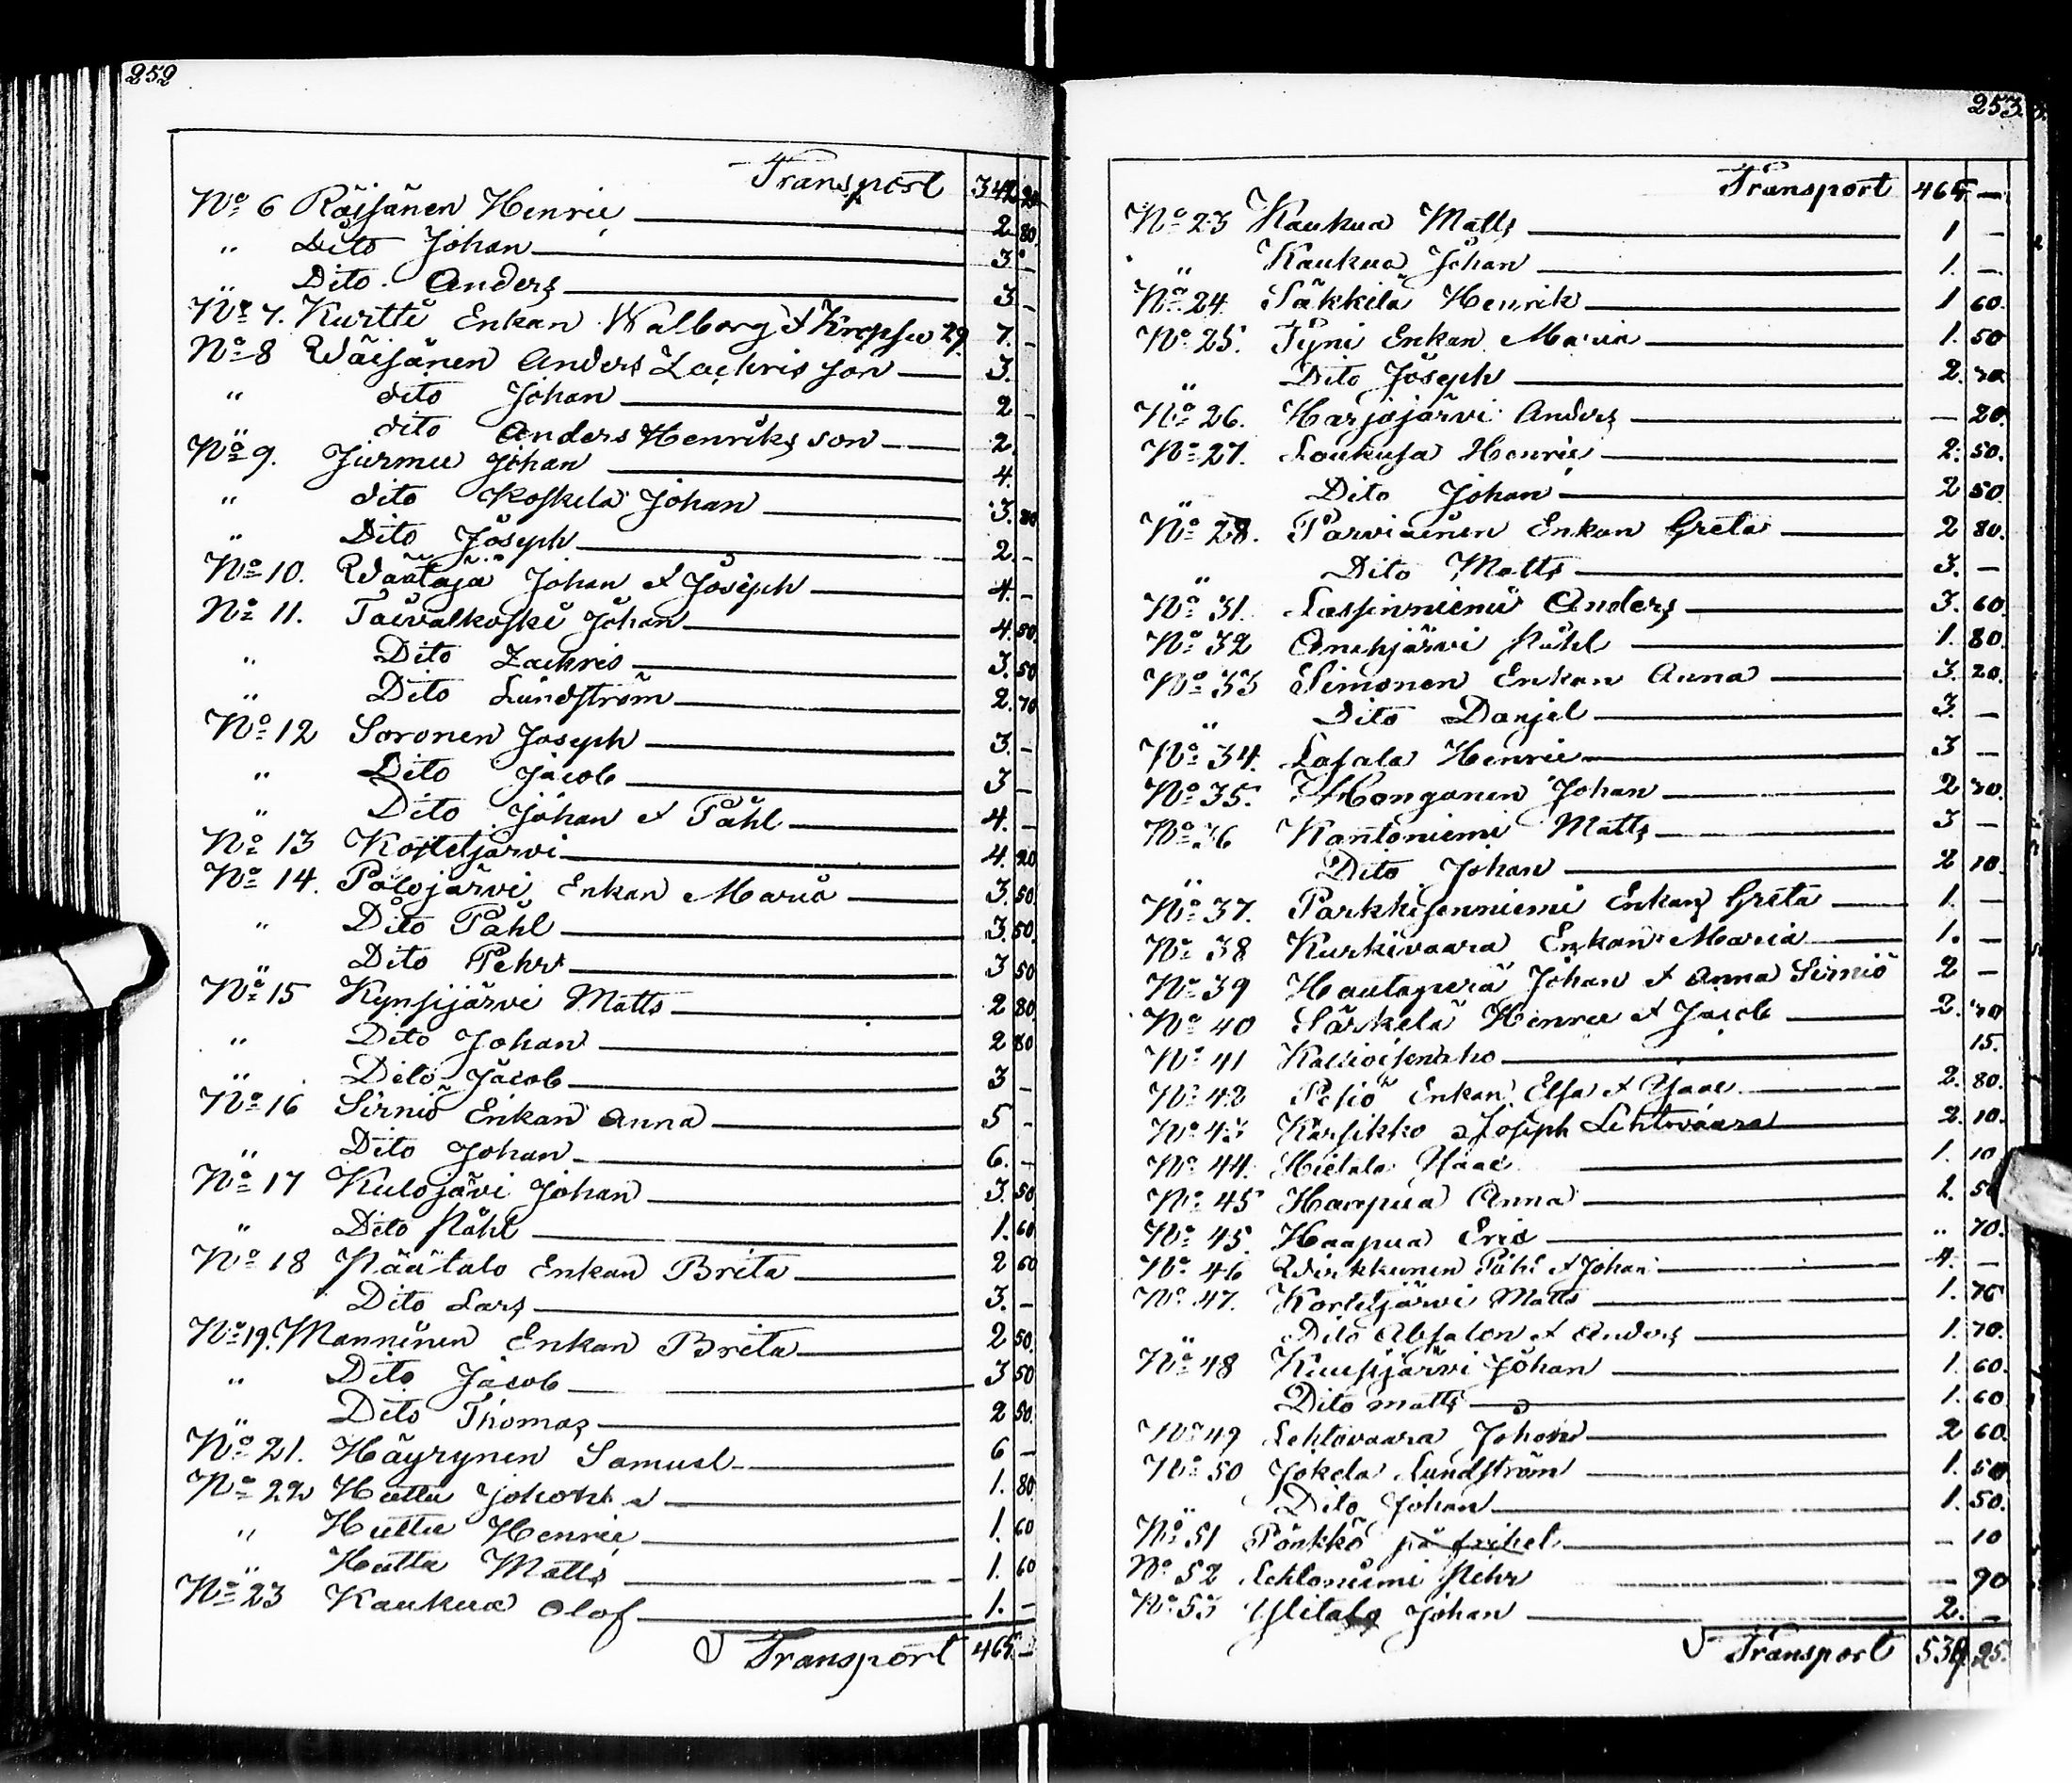 252
Transport 342
No 6 Räisänen Henric 2. 80.
" Dito Johan 3. –
" Dito Anders 3. –
No 7. Kurtti Enkan Walborg & 29 7. –
No 8 Wäisänen Anders Zachris son 3.
" dito Johan 2 –
" dito Anders Henriks son 2.
No 9. Jurmu Johan 4.
" dito Koskela Johan 3. 80
" Dito Joseph 2. –
No 10. Wäätäjä Johan & Joseph 4. –
No 11. Taivalkoski Johan 4. 50.
" Dito Zachris 3. 50
" Dito Lundström 2. 70
No 12 Soronen Joseph 3. –
" Dito Jacob 3 –
" Dito Johan & Påhl 4. –
No 13 Kostetjärvi 4. 20
No 14. Polojärvi Enkan Maria 3. 50.
" Dito Påhl 3. 50.
" Dito Pehr 3 50
No 15 Kynsijärvi Matts 2 80.
" Dito Johan 2 80
" Dito Jacob 3 –
No 16 Sirniö Enkan Anna 5 –
" Dito Johan 6. –
No 17 Kulojävi Johan 3. 50
" Dito Påhl 1. 60
No 18 Päätalo Enkan Brita 2 60
Dito Lars 3. –
No 19. Manninen Enkan Brita 2 50.
" Dito Jacob 3 50
" Dito Thomas 2 50.
No 21. Häyrynen Samuel 6 –
No 22 Huttu 1. 80.
" Huttu Henric 1. 60
" Huttu Matts 1. 60
No 23 Kaukua Olof 1. –
Transport 465. –
253.
Transport 465. –
No 23 Kaukua Matts 1 –
" Kaukua Johan 1. –
No 24. Säkkilä Henrik 1 60.
No 25. Tyni Enkan Maria 1. 50
" Dito Joseph 2. 70
No 26. Harjajärvi Anders – 20.
No 27. Loukusa Henric 2. 50.
" Dito Johan 2 50.
No 28. Parviainen Enkan Greta 2 80.
" Dito Matts 3. –
No 31. Lassinniemi Anders 3. 60.
No 32 Påhl 1. 80.
No 33 Simonen Enkan Anna 3. 20.
" Dito Danjel 3. –
No 34. Lasala Henric 3 –
No 35. Honganen Johan 2 70.
No 36 Kantoniemi Matts 3 –
" Dito Johan 2 10.
No 37. Parkkisenniemi Enkan Greta 1. –
No 38 Kurkivaara Enkan Maria 1. –
No 39 Hautaperä Johan & Anna Sirniö 2 –
No 40 Särkelä Henric & Jacob 2. 70
No 41 15.
No 42 Posiö Enkan Elsa & Isaac 2. 80.
No 43 Karsikko Joseph Lehtovaara 2. 10.
No 44. Hietala Isaac 1. 10
No 45 Haapua Anna 1. 50
No 45. Haapua Eric " 70.
No 46 Wirkkunen Påhl & Johan 4. –
No 47. Kortetjärvi Matts 1. 75
" Dito Absalon & Anders 1. 70.
No 48 Johan 1. 60.
Dito matts 1. 60
No 49 Lehtovaara Johan 2 60.
No 50 Jokela Lundström 1. 50
" Dito Johan 1. 50.
No 51 Pönkkö på frihet – 10
No 52 Lehtoniemi Pehr – 90
No 53 Ylitalo Johan 2. –
Transport 539. 25.